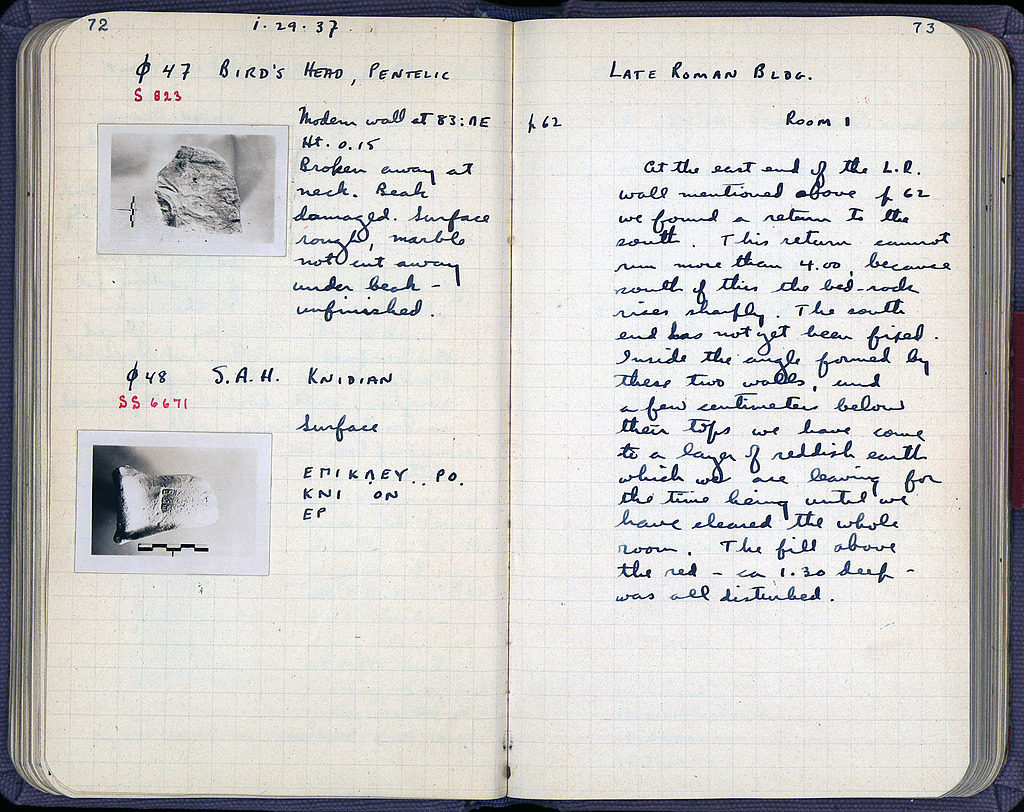 72
i·29·37
ϕ 47 BIRD'S HEAD, PENTELIC
S 823
Modern wall at 83:ΛΕ
Ht. 0.15
Broken away at
neck. Beak
damaged. Surface
rough, marble
not cut away
under beak –
unfinished.
ϕ 48 S.A.H. KNIDIAN
SS 6671
Surface
ΕΠΙΚΛΕΥ..ΠΟ.
ΚΝΙ ΟΝ
ΕΡ
73
LATE ROMAN BLDG.
p 62 ROOM 1
At the east end of the L.R.
wall mentioned above p 62
we found a return to the
south. This return cannot
run more than 4.00, because
south of this the bed-rock
rises sharply. The south
end has not yet been fixed.
Inside the angle formed by
these two walls, and
a few centimeters below
their tops we have come
to a layer of reddish earth
which we are leaving for
the time being until we
have cleared the whole
room. The fill above
the red – ca 1.30 deep –
was all disturbed.